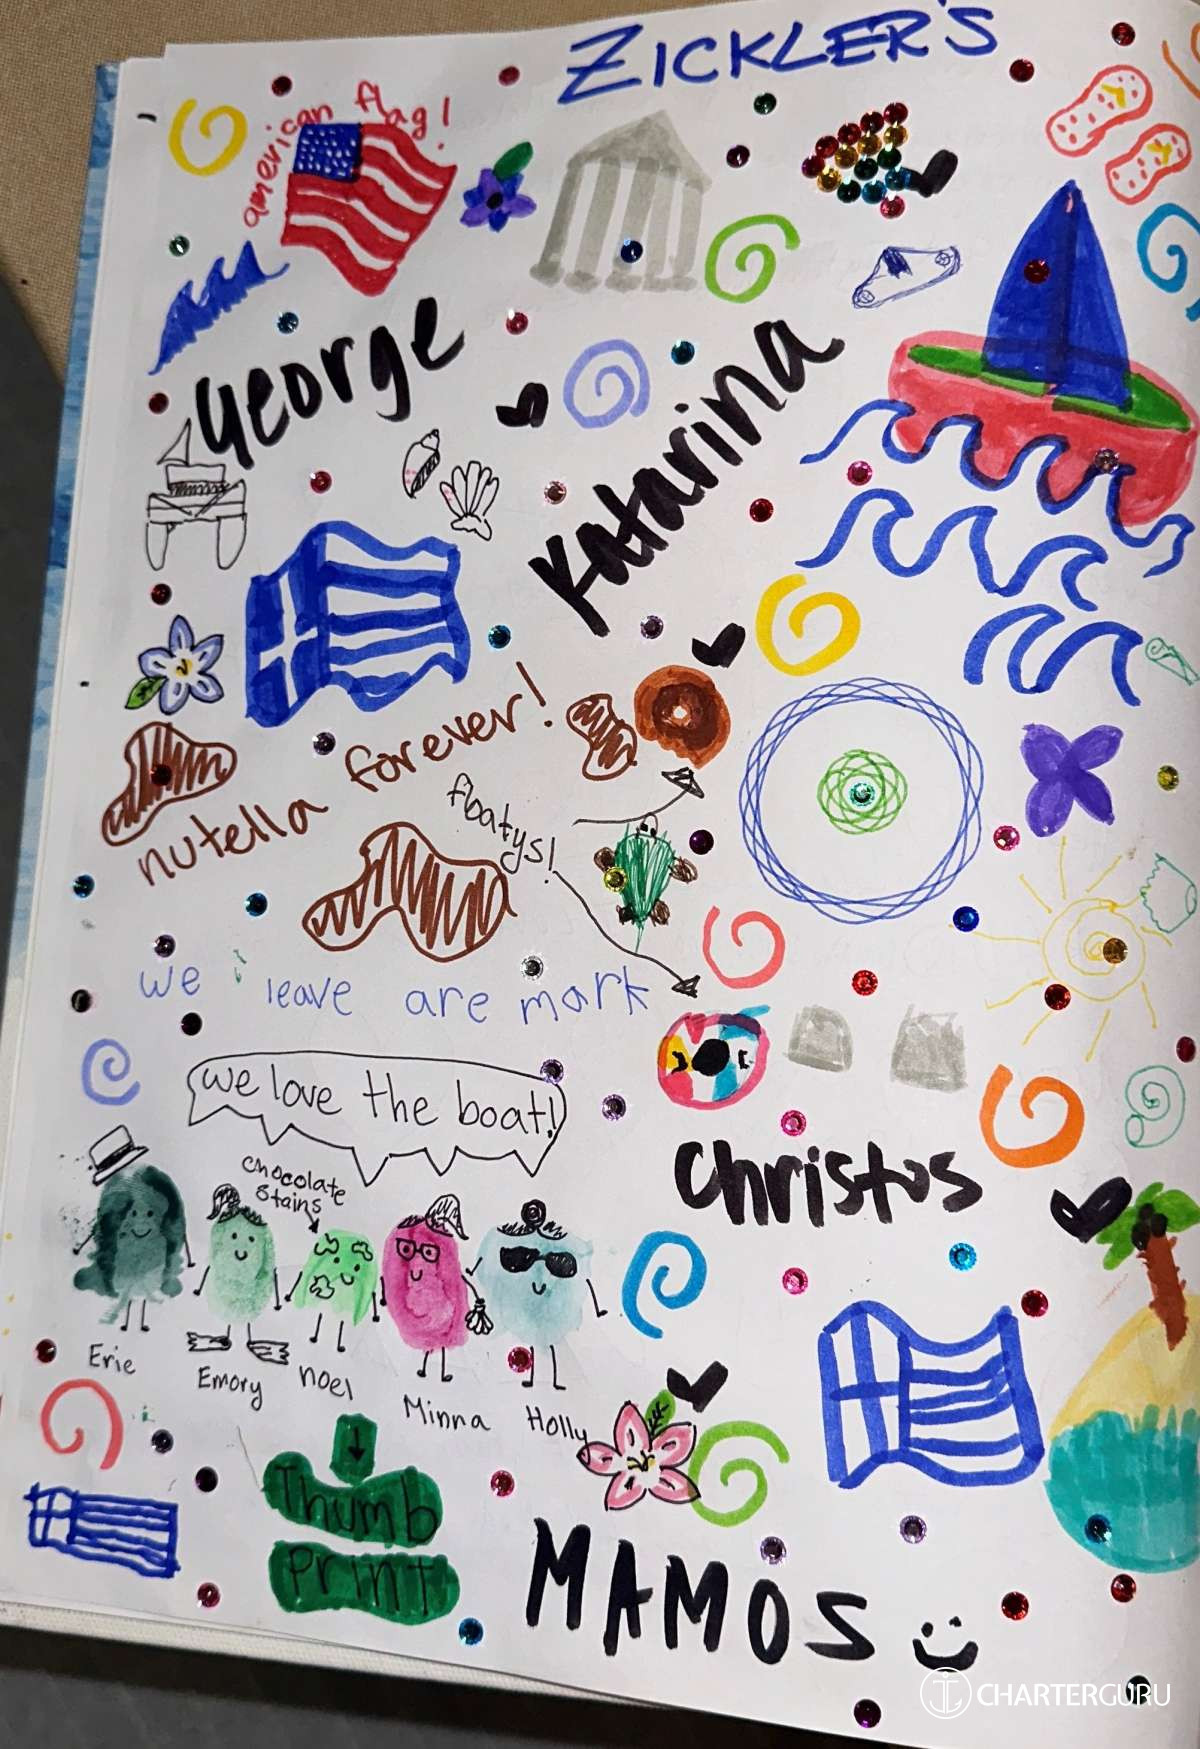 ZICKLER'S
american flag!
George
Katarina
nutella forever!
floatys!
we leave are mark
we love the boat!
chocolate
stains
Christos
Erie
Emory
noel
Minna
Holly
Thumb
print
MAMOS
CHARTERGURU